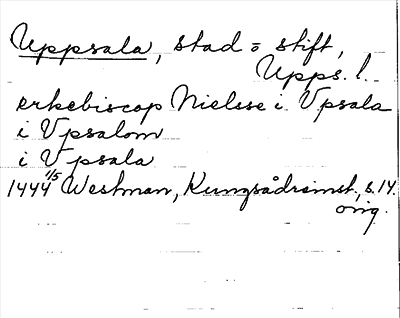 Uppsala, stad o stift,
Upps. l.
erkebiscop Nielsse i Vpsala
i Vpsalom
i Vpsala
1444 1/5 Westman, Kungsådrsinst., s. 14.
orig.